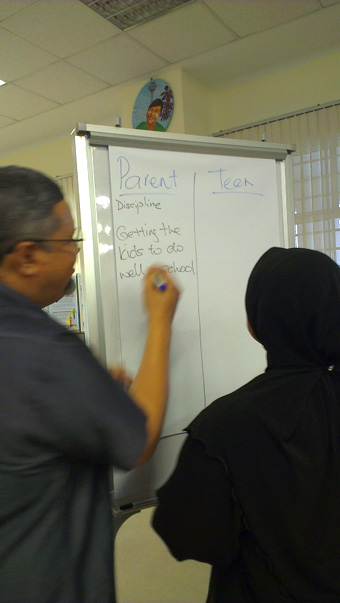 Parent
Teen
Discipline
Getting the
kids to do
well school